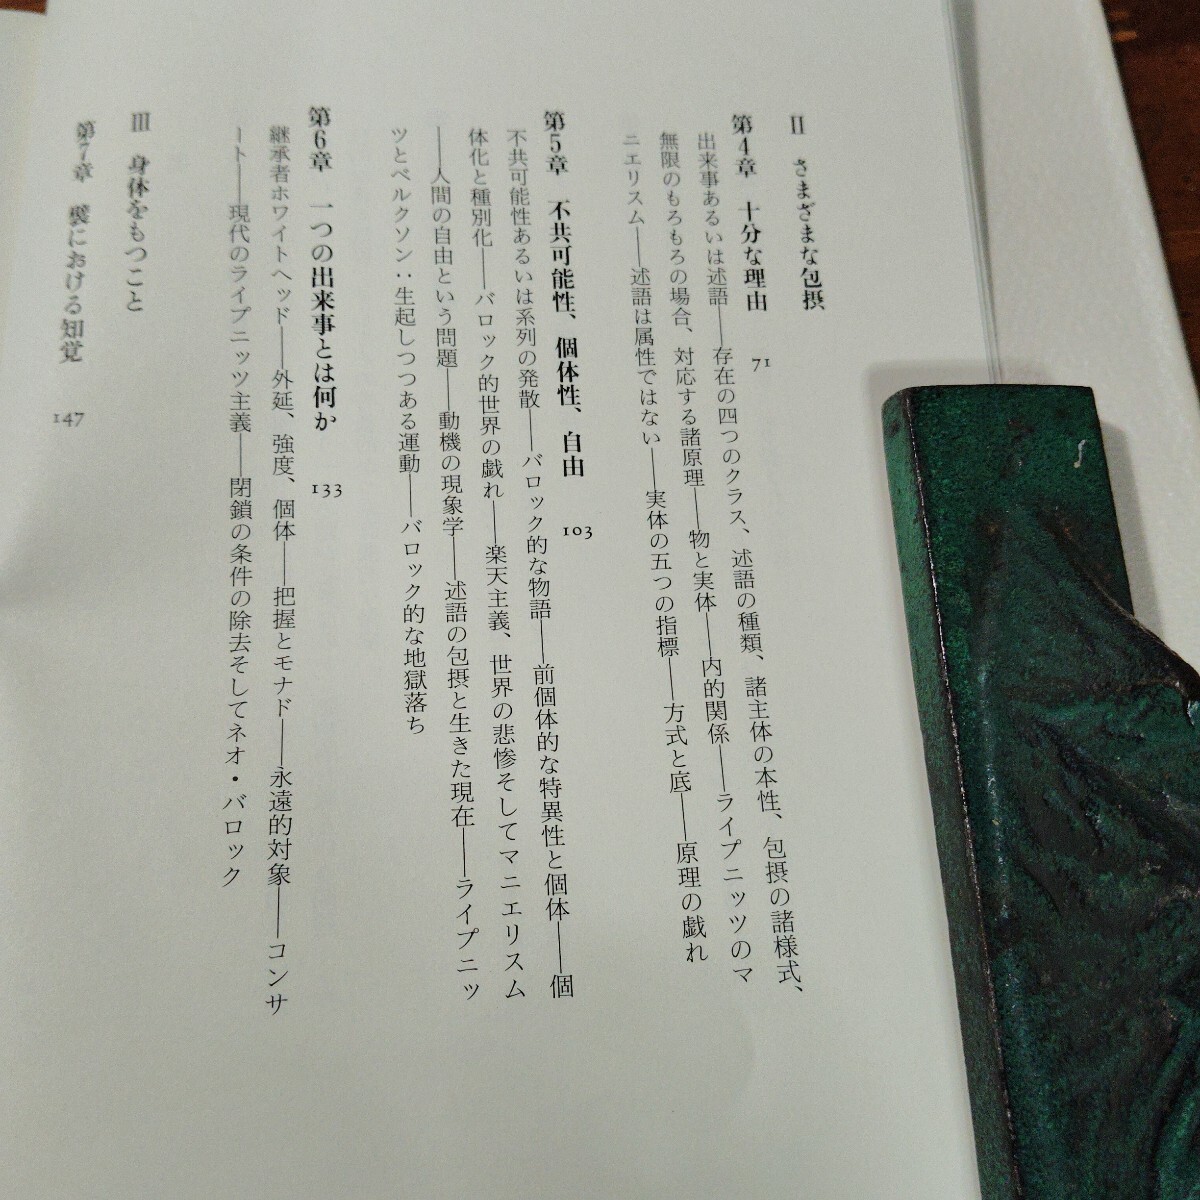 II さまざまな包摂
第4章 十分な理由 71
出来事あるいは述語——存在の四つのクラス、述語の種類、諸主体の本性、包摂の諸様式、
無限のもろもろの場合、対応する諸原理——物と実体——内的関係——ライプニッツのマ
ニエリスム——述語は属性ではない——実体の五つの指標——方式と底——原理の戯れ
第5章 不共可能性、個体性、自由 103
不共可能性あるいは系列の発散——バロック的な物語——前個体的な特異性と個体——個
体化と種別化——バロック的世界の戯れ——楽天主義、世界の悲惨そしてマニエリスム
——人間の自由という問題——動機の現象学——述語の包摂と生きた現在——ライプニッ
ツとベルクソン：生起しつつある運動——バロック的な地獄落ち
第6章 一つの出来事とは何か 133
継承者ホワイトヘッド——外延、強度、個体——把握とモナド——永遠的対象——コンサ
ート——現代のライプニッツ主義——閉鎖の条件の除去そしてネオ・バロック
III 身体をもつこと
第7章 襞における知覚 147